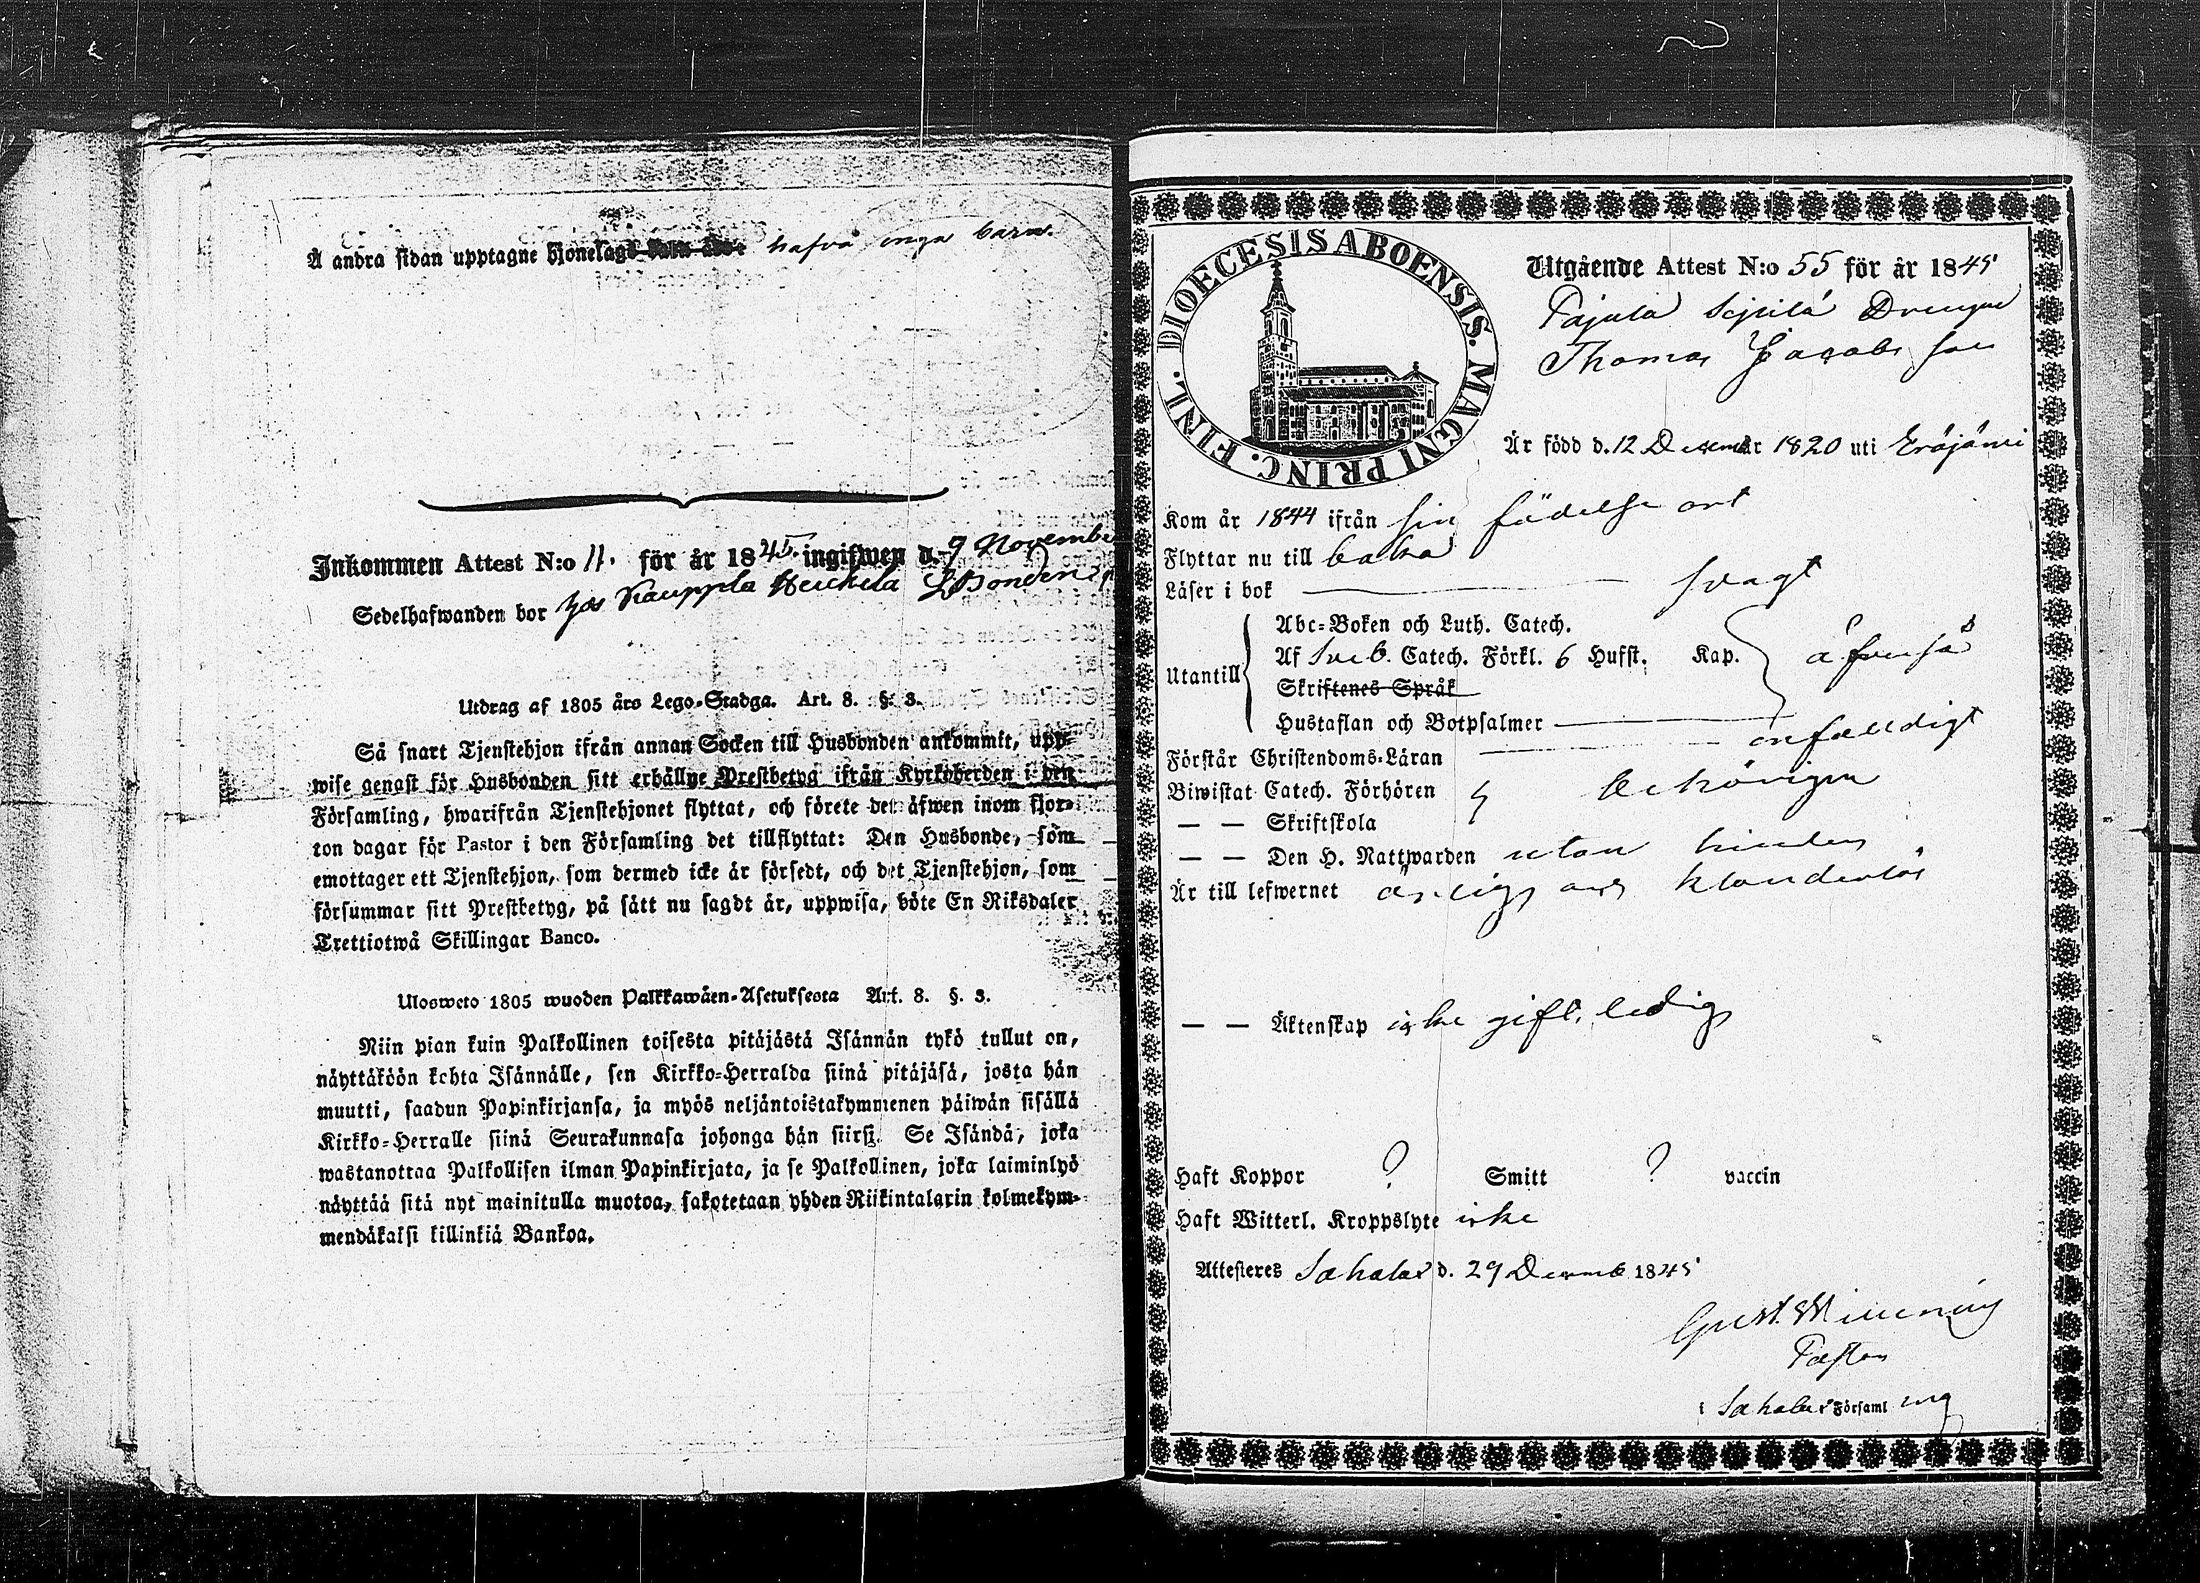 Å andra sidan upptagne hjonelags hafva inga barn.
Inkommen Attest N:o 11. för år 1845. ingifwen d. 9 November
Sedelhafwanden bor hos Kauppila Heickilä Bonden
Utdrag af 1805 års Lego-Stadga. Art. 8. §. 3.
Så snart Tjenstehjon ifrån annan Socken till Husbonden ankommit, upp-
wise genast för Husbonden sitt erhållne Prestbetyg ifrån Kyrkoherden i den
Församling, hwarifrån Tjenstehjonet flyttat, och förete det äfwen inom fjor-
ton dagar för Pastor i den Församling det tillflyttat: Den Husbonde, som
emottager ett Tjenstehjon, som dermed icke är försedt, och det Tjenstehjon, som
försummar sitt Prestbetyg, på sätt nu sagdt är, uppwisa, böte En Riksdaler
Trettiotwå Skillingar Banco.
Ulosweto 1805 wuoden Palkkawäen-Asetuksesta Art. 8. §. 3.
Niin pian kuin Palkollinen toisesta pitäjästä Isännän tykö tullut on,
näyttäköön kohta Isännälle, sen Kirkko-Herralda siinä pitäjäsä, josta hän
muutti, saadun Papinkirjansa, ja myös neljäntoistakymmenen päiwän sisällä
Kirkko-Herralle siinä Seurakunnasa johonga hän siirsi. Se Isändä, joka
wastanottaa Palkollisen ilman Papinkirjata, ja se Palkollinen, joka laiminlyö
näyttää sitä nyt mainitulla muotoa, sakotetaan yhden Riikintalarin kolmekym-
mendäkaksi killinkiä Bankoa.
DIOECESIS ABOENSIS. MAGNI PRINC. FINL.
Utgående Attest N:o 55 för år 1845
Pajula Drengen
Thomas Jacobsson
Är född d. 12 Decemb år 1820 uti Eräjärvi
Kom år 1844 ifrån sin födelse ort
Flyttar nu till baka
Läser i bok svagt
Utantill
Abc-Boken och Luth. Catech.
Af Sveb. Catech. Förkl. 6 Hufst. Kap. äfvenså
Skriftenes Språk
Hustaflan och Botpsalmer
Förstår Christendoms-Läran enfalldigt
Biwistat Catech. Förhören behörigen
— — Skriftskola
— — Den H. Nattwarden utan hinder
Är till lefwernet ärlig och klanderlös
— — Äktenskap icke gift, ledig
Haft Koppor ? Smitt ? vaccin
Haft Witterl. Kroppslyte icke
Attesteres Sahalax d. 29 Decemb 1845
Gust.
Pastor
i Sahalax Församling